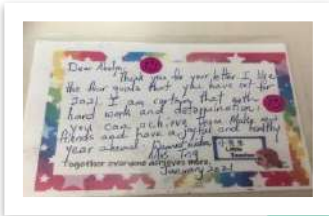 Dear
Thank you for your letter. I like
the four goals that you have set for
2021. I am certain that with
hard work and determination,
you can achieve them. Make more
friends and have a joyful and healthy
year ahead.
Little
Teacher
Together everyone achieves more.
January 2021